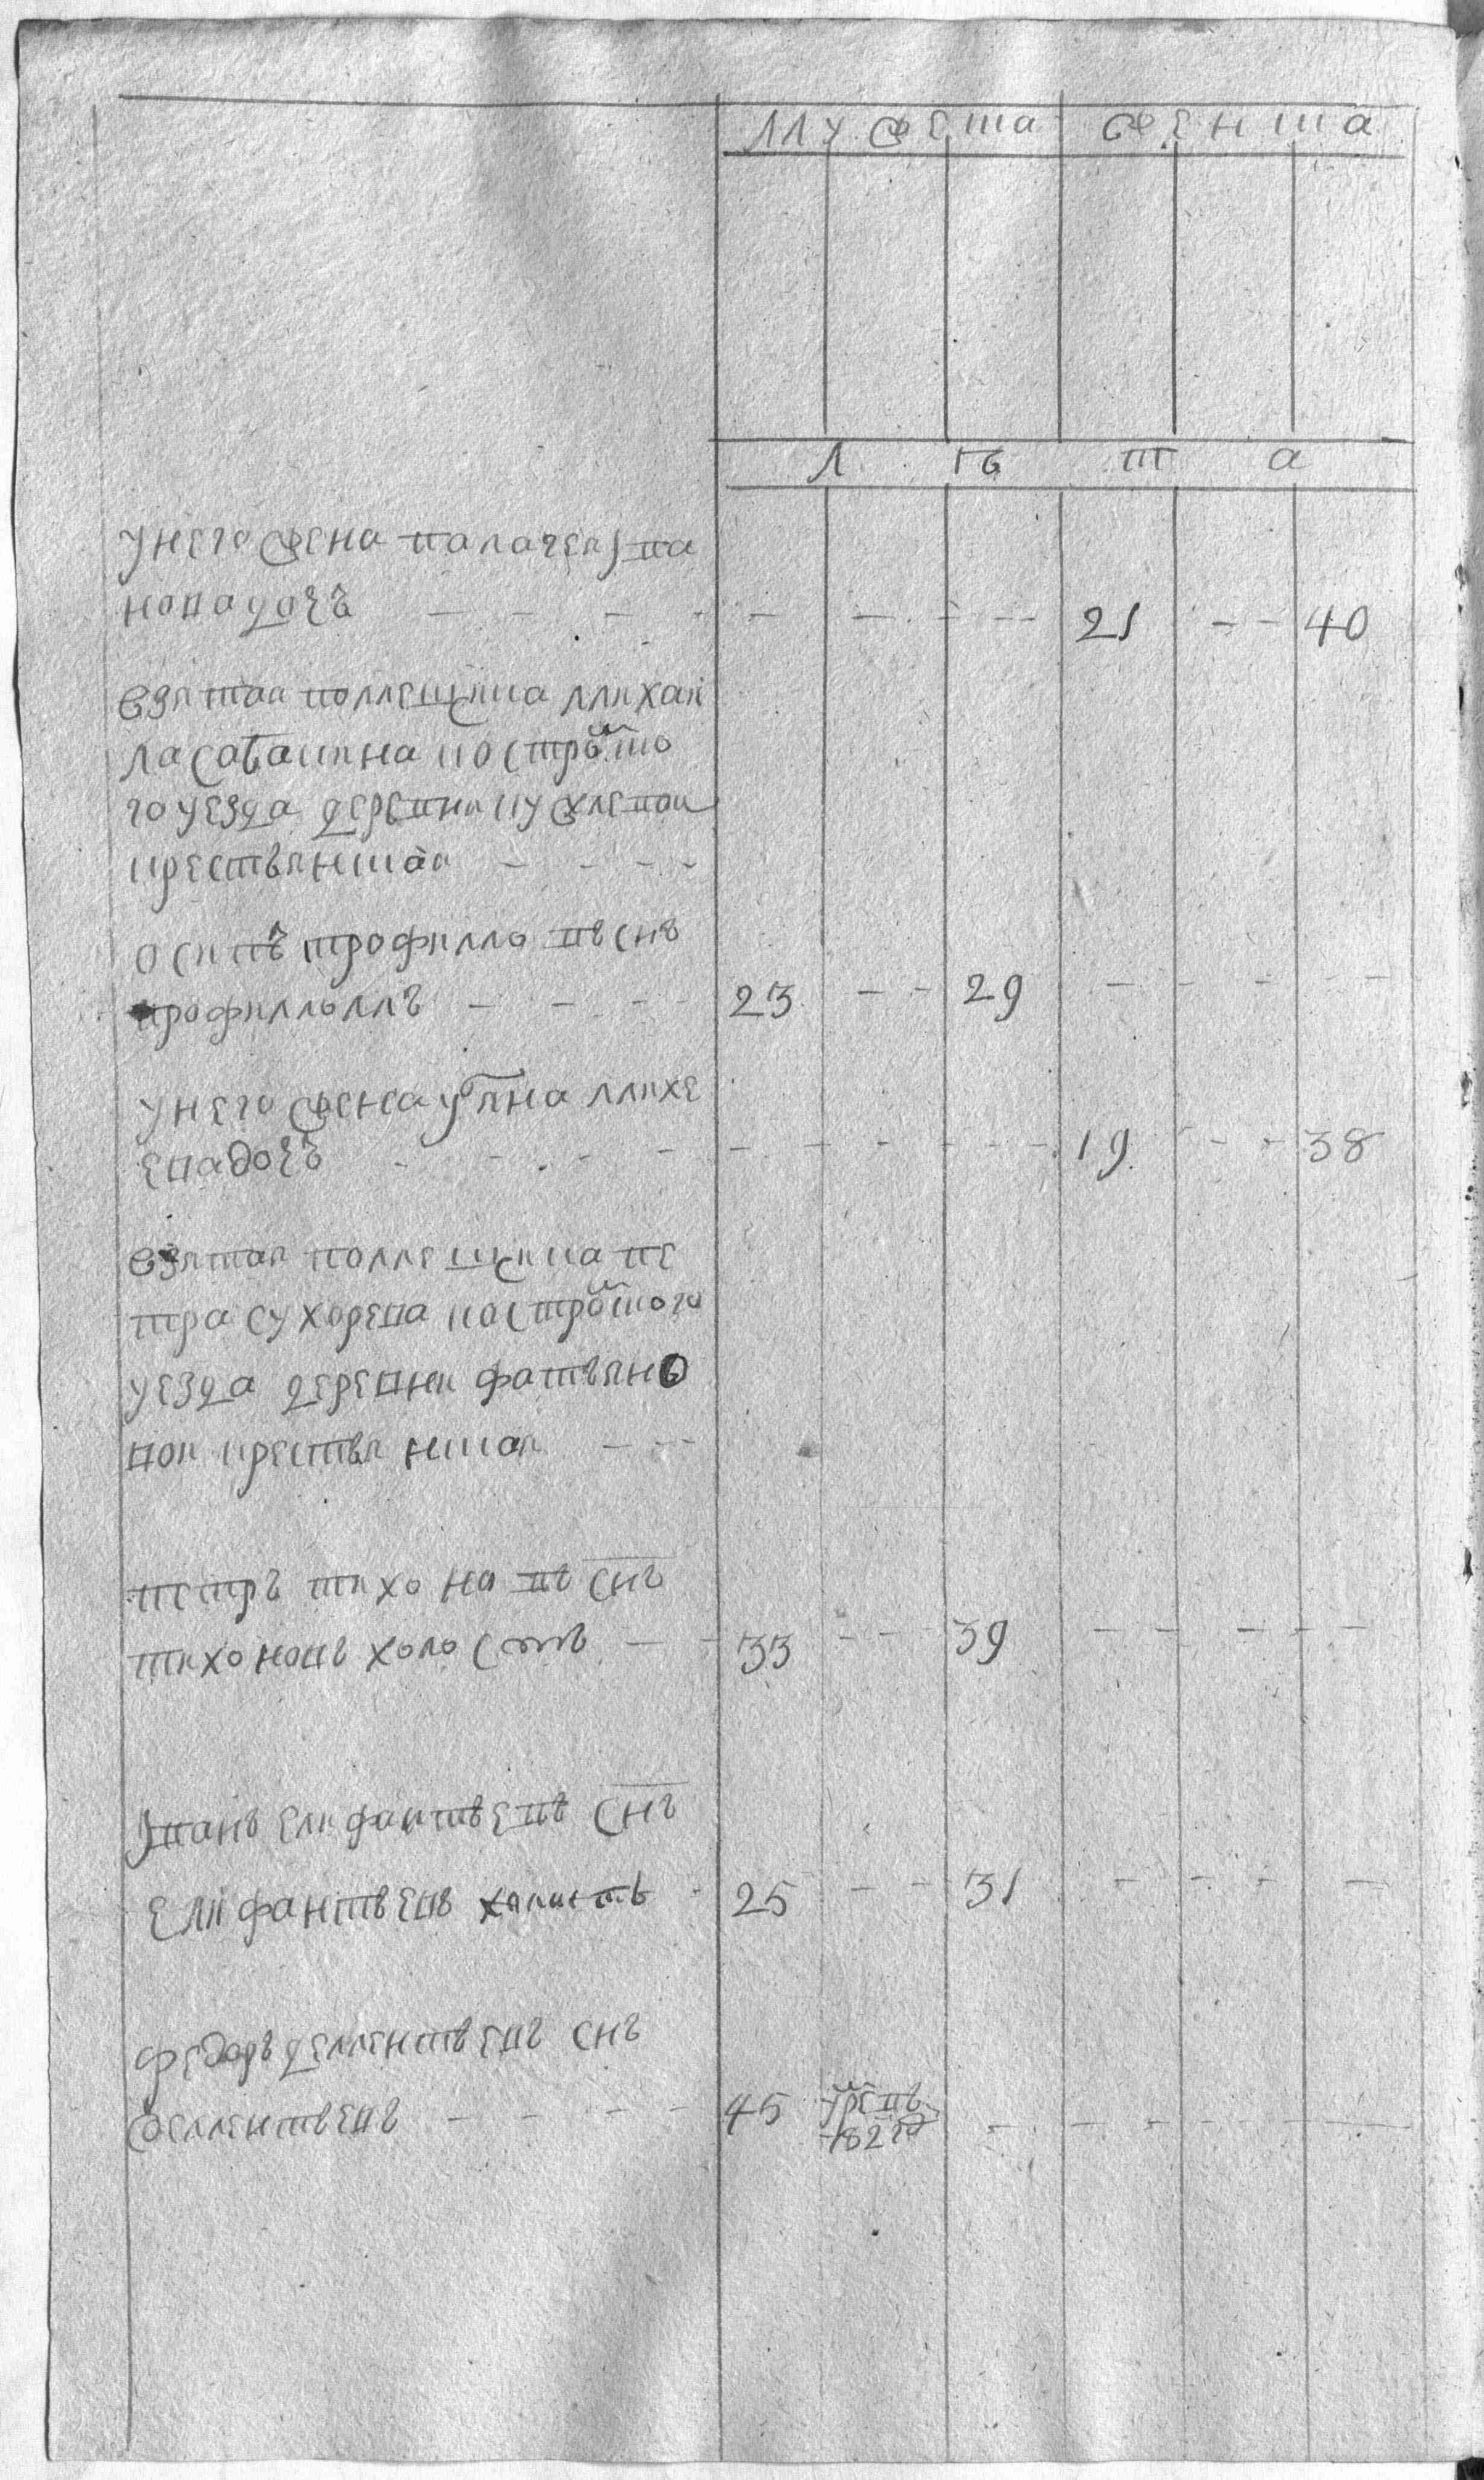 мужеска женска
л ѣ т а
у него жена палагея ива
новадочь - - - - - - - 21 - - 40
взятая помещика михаи
ла сабакина костромъко
го уезда деревни
крестьянъкая - - - -
осипъ трофимовъ снъ
трофимомъ - - - - 23 - - 29 - - - - -
у него жена ульяна михе
евадочь - - - - - - - - 19 - - 38
взятая помещика пе
тра сухорева костромъкого
уезда деревни фатьяно
вои крестьянъкая - - -
петръ тихоновъ снъ
тихоновъ холостъ - - 33 - - - 39 - - - - -
иванъ елифантьевъ снъ
елифантьевъ холостъ - 25 - - 31 - - - - -
федоръ дементьевъ снъ
дементьевъ - - - - 45 умре въ - - - - - -
182 г